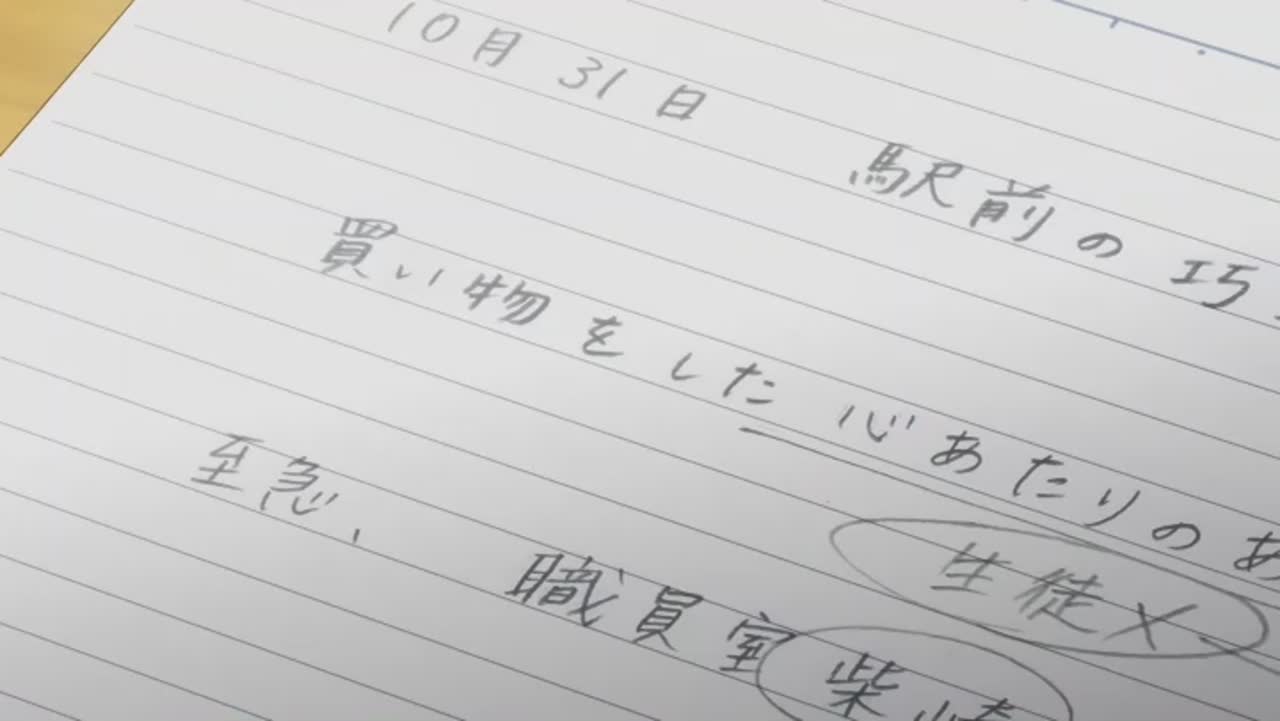 10月31日 駅前の巧
買い物をした心あたりのあ
生徒X
至急、職員室 柴崎